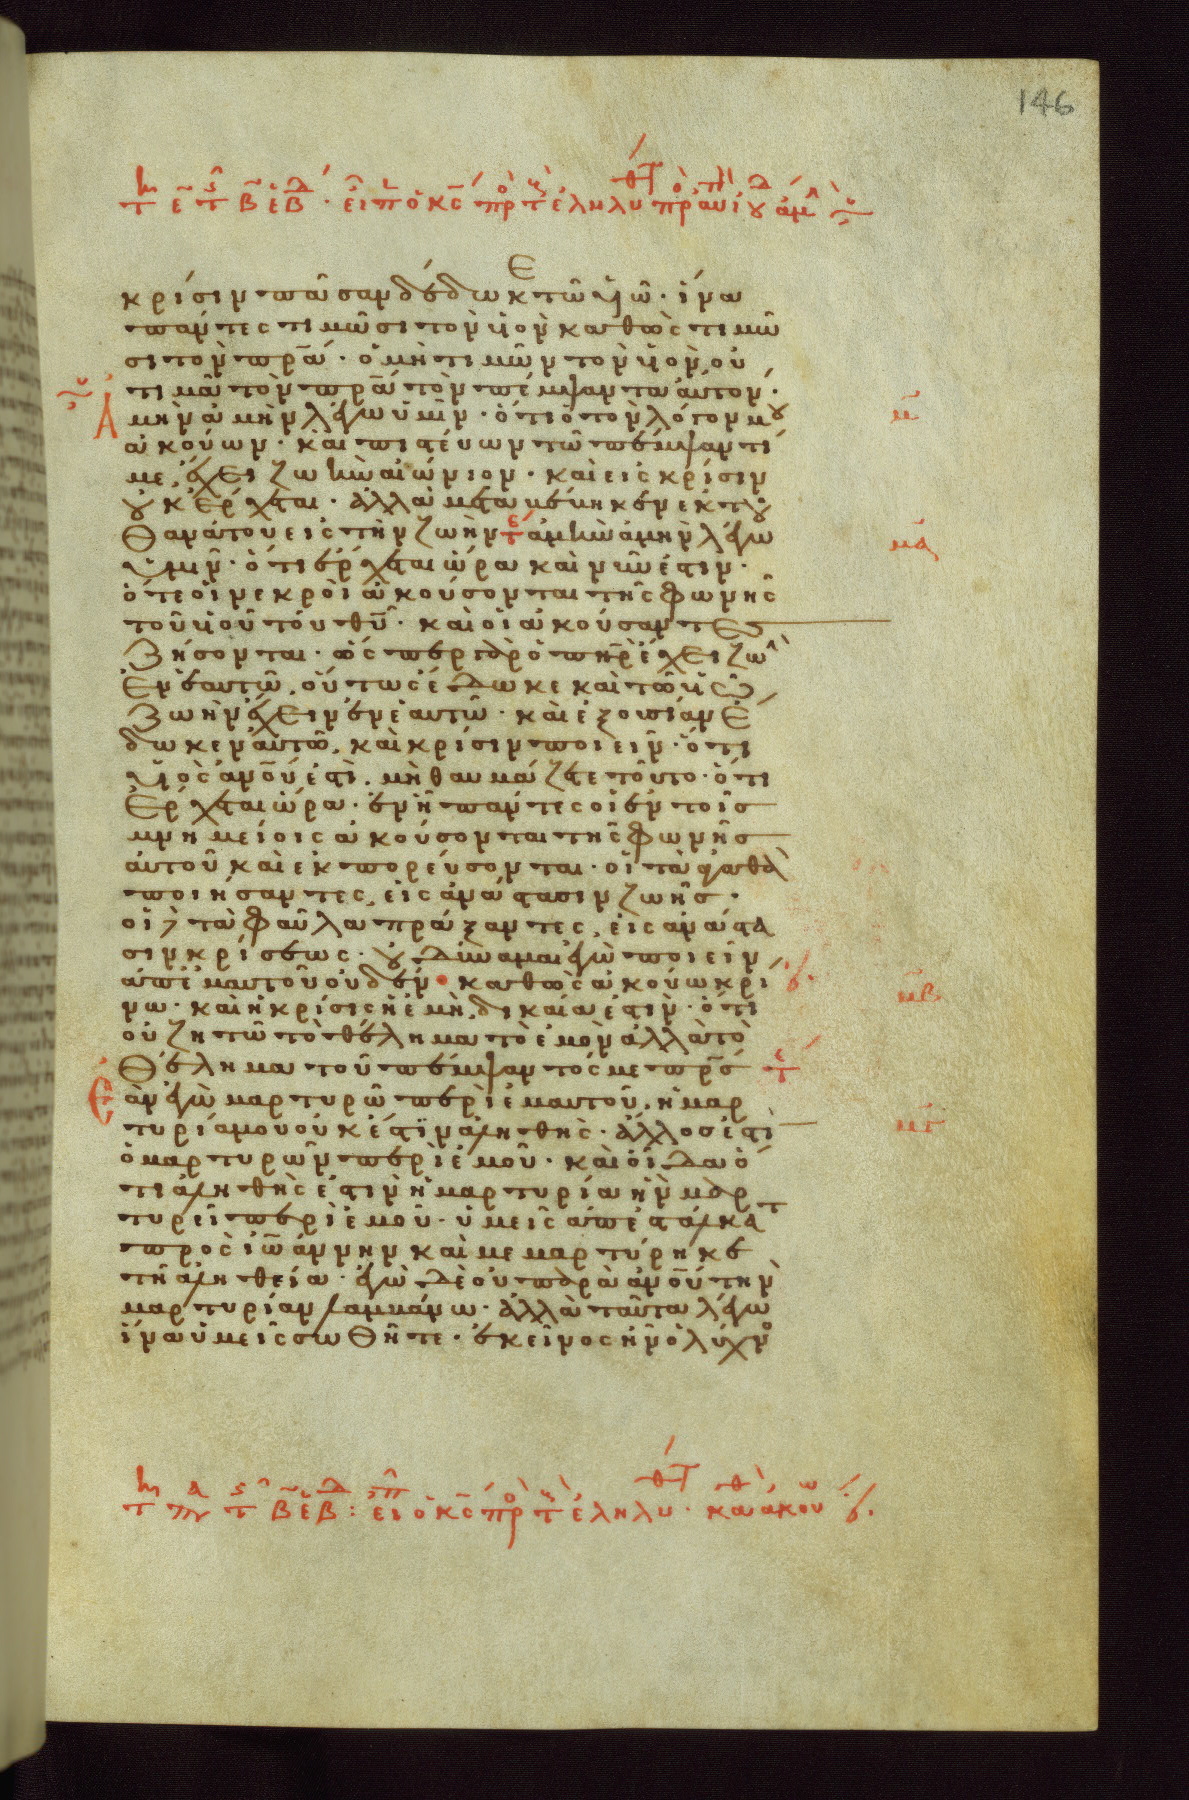 146
κρίσιν πᾶσαν δέδωκε τῶ υἱῶ· ἵνα
πάντες τιμῶσι τὸν υἱὸν καθὼς τιμῶ
σι τὸν πρ̅α· ὁ μὴ τιμῶν τὸν υἱὸν, οὐ
τιμᾶ τὸν πρ̅α τὸν πέμψαντα αὐτόν·
Ἀμὴν ἀμὴν λέγω ὑμῖν· ὅτι ὁ τὸν λόγον μου
ἀκούων· καὶ πιστεύων τῶ πέμψαντί
με, ἔχει ζωὴν αἰώνιον· καὶ εἰς κρίσιν
οὐκ ἔρχεται· ἀλλὰ μεταβέβηκεν ἐκ τοῦ
θανάτου εἰς τὴν ζωήν ἀμὴν ἀμὴν λέγω
ὑμῖν· ὅτι ἔρχεται ὥρα καὶ νῦν ἐστιν·
ὅτε οἱ νεκροὶ ἀκούσονται τῆς φωνῆς
τοῦ υἱοῦ τοῦ θ̅υ· καὶ οἱ ἀκούσαντες
ζήσονται· ὥσπερ γὰρ ὁ π̅η̅ρ ἔχει ζωὴν
ἐν ἑαυτῶ, οὕτως ἔδωκε καὶ τῶ υἱῶ
ζωὴν ἔχειν ἐν ἑαυτῶ· καὶ ἐξουσίαν ἔ
δωκεν αὐτῶ, καὶ κρίσιν ποιεῖν· ὅτι
υἱὸς ἀν̅ου ἐστὶ, μὴ θαυμάζετε τοῦτο· ὅτι
ἔρχεται ὥρα· ἐν ἧ πάντες οἱ ἐν τοῖς
μνημείοις ἀκούσονται τῆς φωνῆς
αὐτοῦ καὶ ἐκπορεύσονται· οἱ τὰ ἀγαθὰ
ποιήσαντες, εἰς ἀνάστασιν ζωῆς·
οἱ δὲ τὰ φαῦλα πράξαντες, εἰς ἀνάστα
σιν κρίσεως· οὐ δύναμαι ἐγὼ ποιεῖν
ἀπ' ἐμαυτοῦ οὐδέν· καθὼς ἀκούω κρί
νω· καὶ ἡ κρίσις ἡ ἐμὴ, δικαία ἐστὶν· ὅτι
οὐ ζητῶ τὸ θέλημα τὸ ἐμὸν ἀλλὰ τὸ
θέλημα τοῦ πέμψαντός με πρ̅ς
Ἐὰν ἐγὼ μαρτυρῶ περὶ ἐμαυτοῦ, ἡ μαρ
τυρία μου οὐκ ἔστιν ἀληθής· ἄλλος ἐστὶ
ὁ μαρτυρῶν περὶ ἐμοῦ· καὶ οἶδα ὅ
τι ἀληθής ἐστιν ἡ μαρτυρία ἣν μαρ
τυρεῖ περὶ ἐμοῦ· ὑμεῖς ἀπεστάλκατ
πρὸς ἰω̅άννην καὶ μεμαρτύρηκε
τῆ ἀληθεία· ἐγὼ δὲ οὐ παρὰ ἀν̅ου τὴν
μαρτυρίαν λαμβάνω· ἀλλὰ ταῦτα λέγω
ἵνα ὑμεῖς σωθῆτε· ἐκεῖνος ἦν ὁ λύχνο
μ̅
μ̅α
μ̅β
μ̅γ